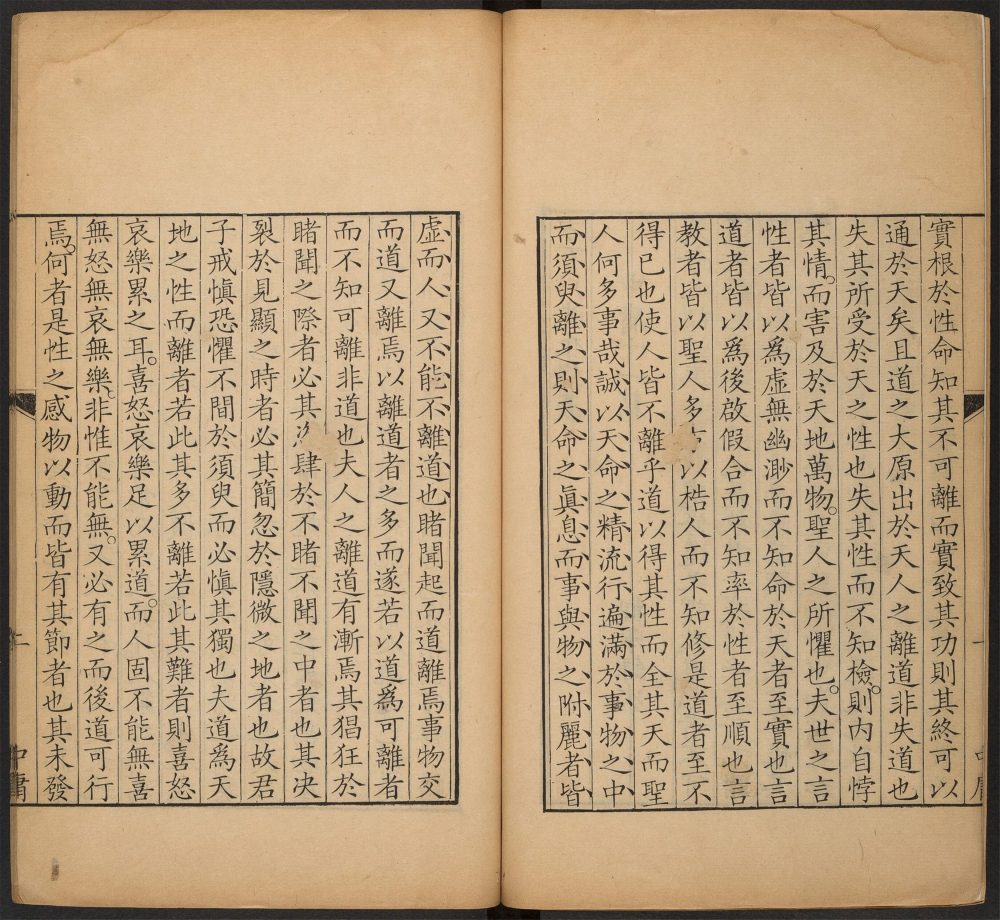 實根於性命知其不可離而實致其功則其終可以
通於天矣且道之大原出於天人之離道非失道也
失其所受於天之性也失其性而不知檢則內自悖
其情。而害及於天地萬物。聖人之所懼也。夫世之言
性者皆以為虛無幽渺而不知命於天者至實也言
道者皆以爲後啟假合而不知率於性者至順也言
教者皆以聖人多以梏人而不知修是道者至不
得已也使人皆不離乎道以得其性而全其天而聖
人何多事哉誠以天命之精流行遍滿於事物之中
而須臾離之則天命之眞息而事與物之附麗者皆
虛而人又不能不離道也睹聞起而道離焉事物交
而道又離焉以離道者之多而遂若以道爲可離者
而不知可離非道也夫人之離道有漸焉其猖狂於
睹聞之際者必其肆於不睹不聞之中者也其决
裂於見顯之時者必其簡忽於隱微之地者也故君
子戒慎恐懼不間於須臾而必慎其獨也夫道爲天
地之性而離者若此其多不離若此其難者則喜怒
哀樂累之耳。喜怒哀樂足以累道。而人固不能無喜
無怒無哀無樂。非惟不能無。又必有之而後道可行
焉。何者是性之感物以動而皆有其節者也其未發
中庸